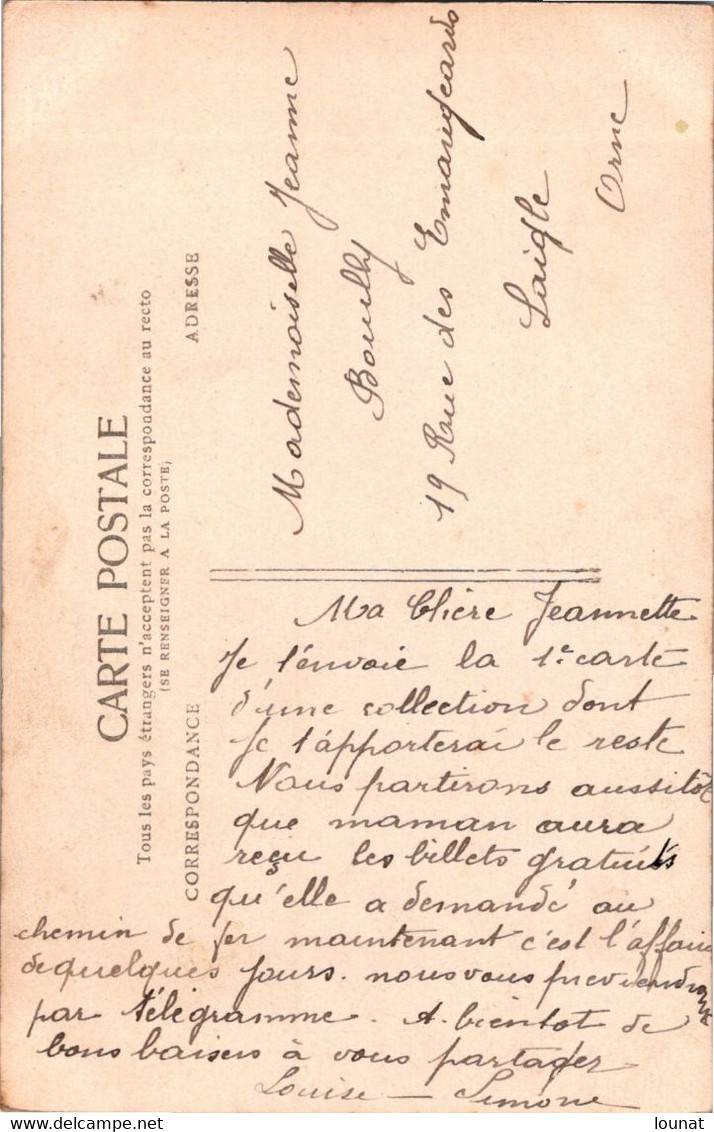 CARTE POSTALE
Tous les pays étrangers n'acceptent pas la correspondance au recto
(SE RENSEIGNER A LA POSTE)
CORRESPONDANCE
ADRESSE
Mademoiselle Jeanne
Bouilly
19 Rue des Emangeards
Laigle
Orne
Ma Chère Jeannette
Je t'envoie la 1e carte
d'une collection dont
Je t'apporterai le reste
Nous partirons aussitôt
que maman aura
reçu les billets gratuits
qu'elle a demandé au
chemin de fer maintenant c'est l'affaire
de quelques jours. nous vous previendrons
par télégramme. A bientot de
bons baisers à vous partager
Louise — Simone
lounat
www.delcampe.net